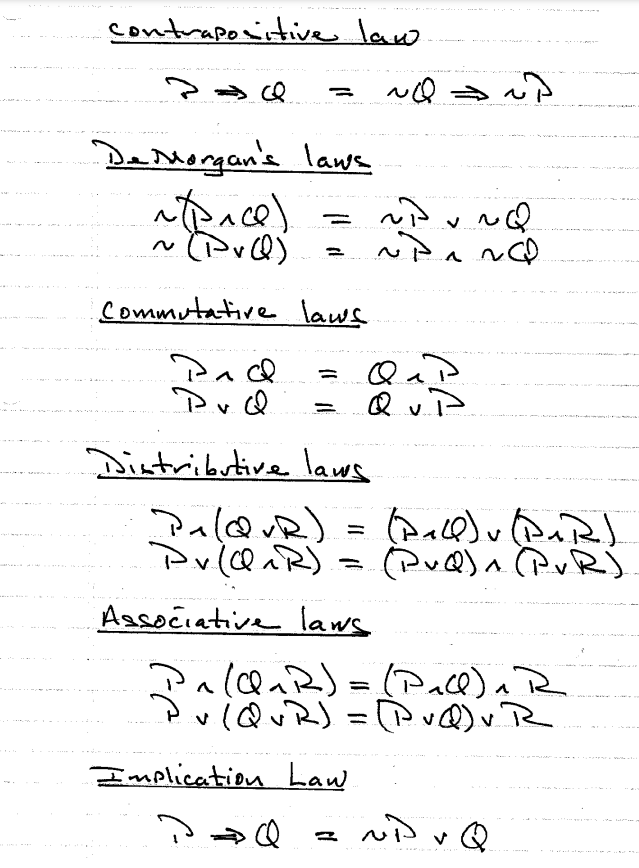 contrapositive law
P ⇒ Q = ~Q ⇒ ~P
DeMorgan's laws
~(P ∧ Q) = ~P ∨ ~Q
~(P ∨ Q) = ~P ∧ ~Q
Commutative laws
P ∧ Q = Q ∧ P
P ∨ Q = Q ∨ P
Distributive laws
P ∧ (Q ∨ R) = (P ∧ Q) ∨ (P ∧ R)
P ∨ (Q ∧ R) = (P ∨ Q) ∧ (P ∨ R)
Associative laws
P ∧ (Q ∧ R) = (P ∧ Q) ∧ R
P ∨ (Q ∨ R) = (P ∨ Q) ∨ R
Implication Law
P ⇒ Q = ~P ∨ Q